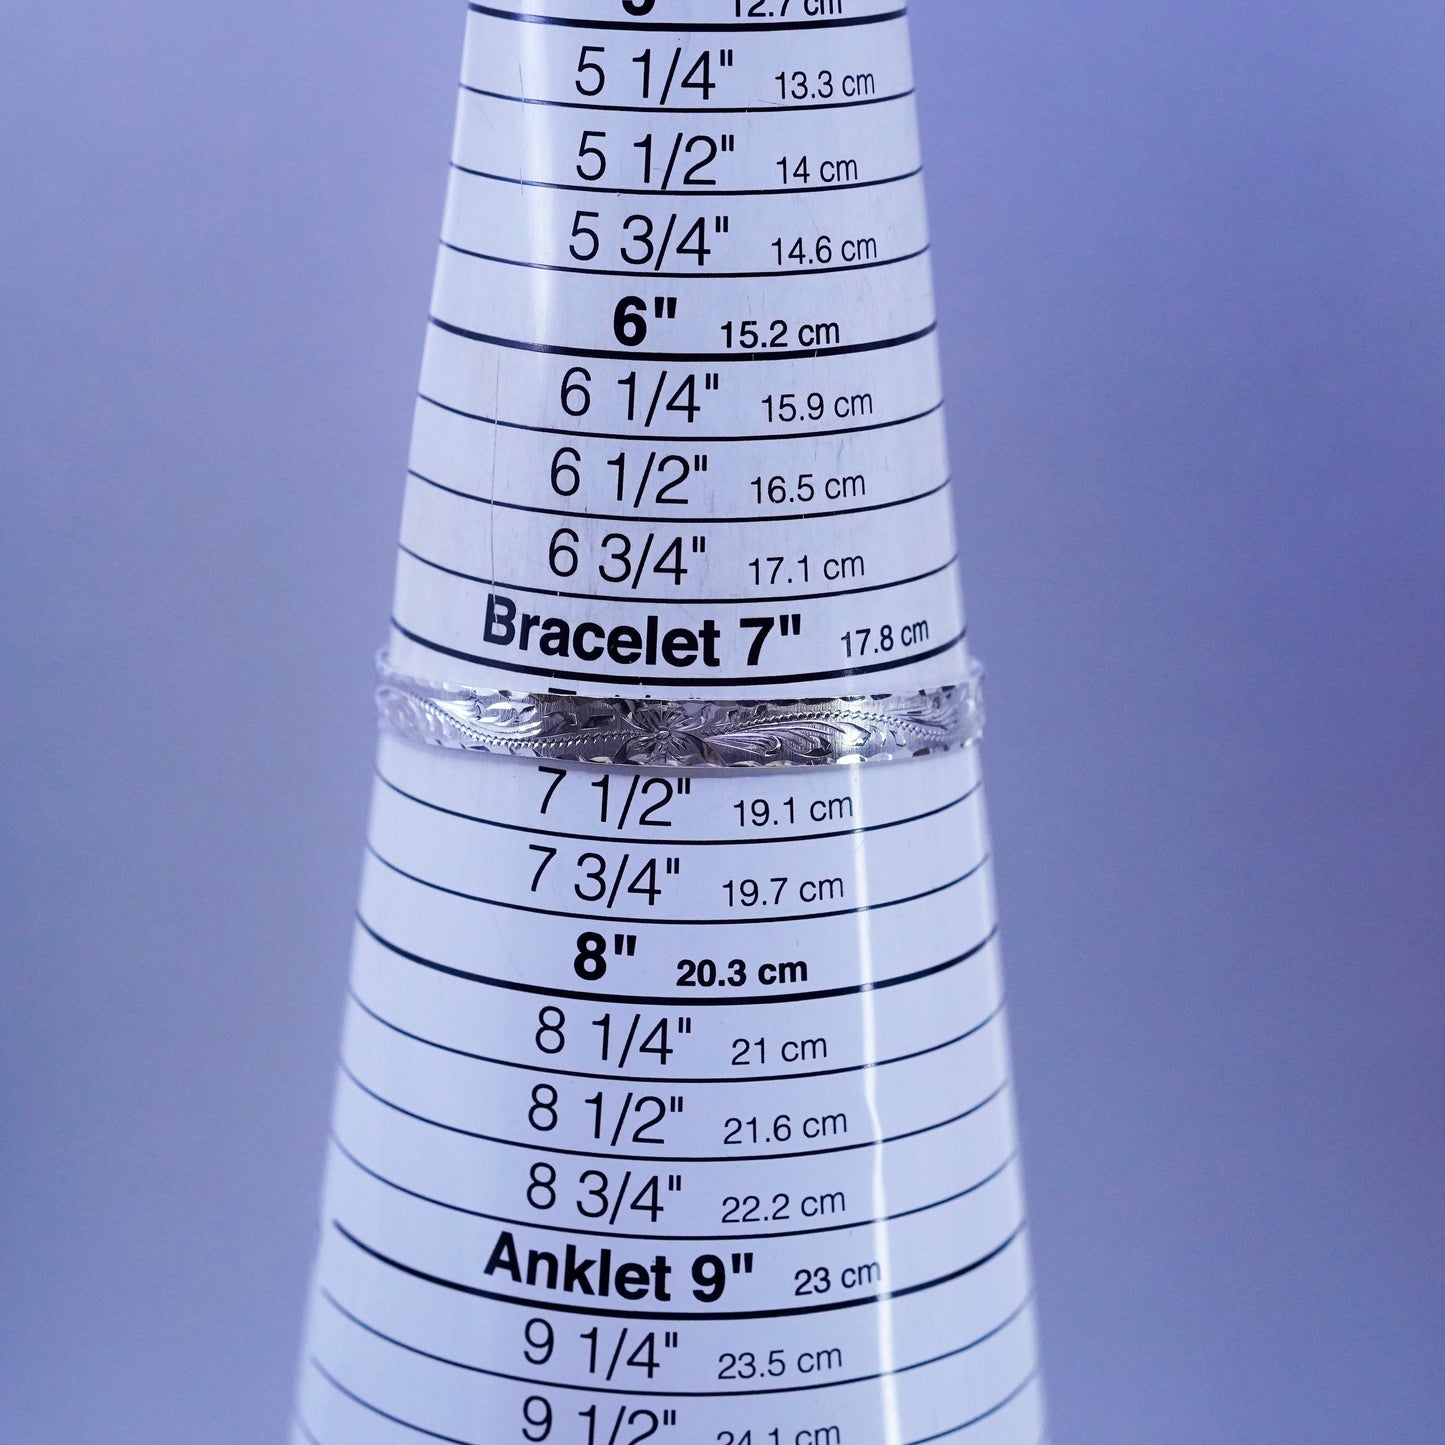 12.7 cm
5 1/4" 13.3 cm
5 1/2" 14 cm
5 3/4" 14.6 cm
6" 15.2 cm
6 1/4" 15.9 cm
6 1/2" 16.5 cm
6 3/4" 17.1 cm
Bracelet 7" 17.8 cm
7 1/2" 19.1 cm
7 3/4" 19.7 cm
8" 20.3 cm
8 1/4" 21 cm
8 1/2" 21.6 cm
8 3/4" 22.2 cm
Anklet 9" 23 cm
9 1/4" 23.5 cm
9 1/2" 24.1 cm